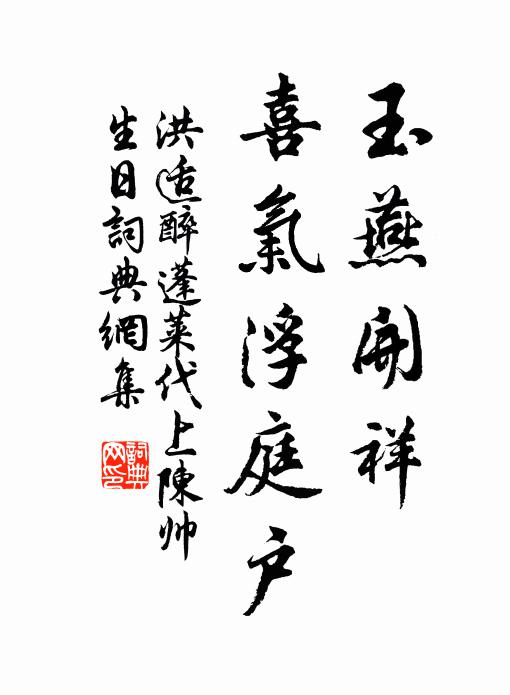 玉燕開祥
喜氣浮庭戶
洪适醉蓬萊代上陳帅
生日詞典網集
詞典
网印